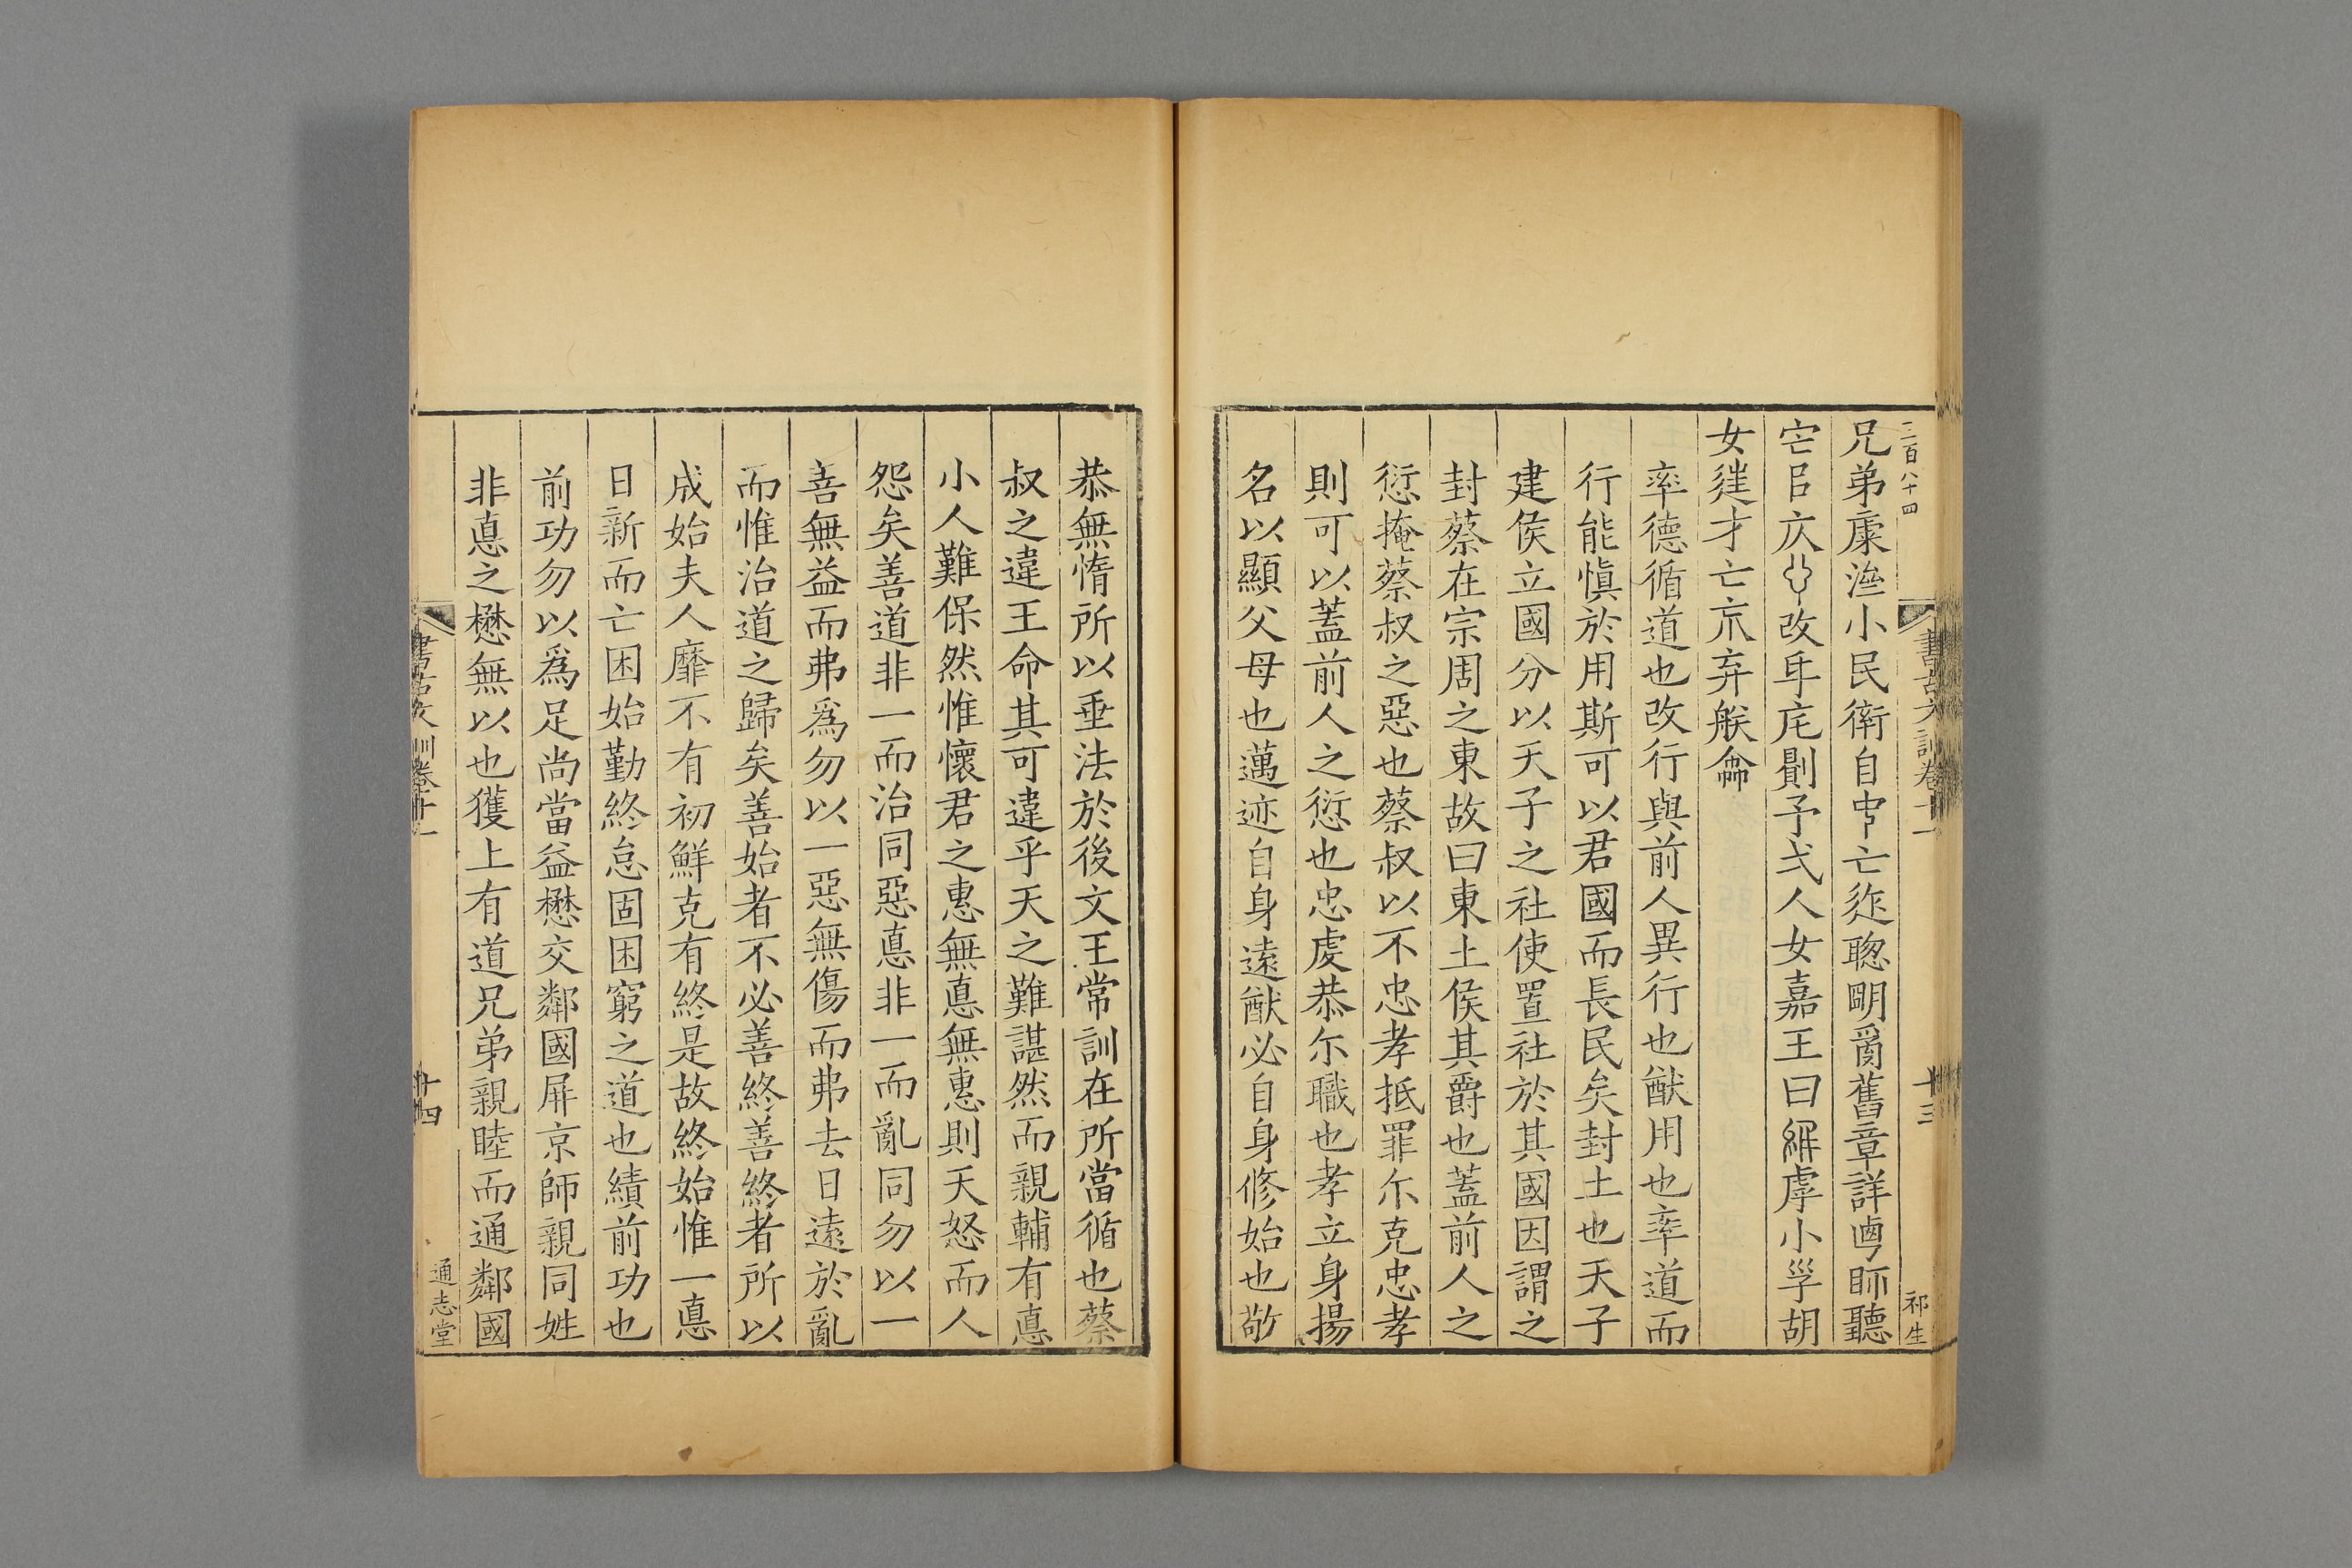 二百八十四
兄弟康㳫小民衛自𠁩亡𨒫聦朙𤔔舊章詳𠧟眎聽
宅㠯庂改厥庇劓予弌人女嘉王曰繲虖小孚胡
女𨒌才亡𠅏弃朕龠
率德循道也改行與前人異行也猷用也率道而
行能慎於用斯可以君國而長民矣封土也天子
建侯立國分以天子之社使置社於其國因謂之
封蔡在宗周之東故曰東土侯其爵也蓋前人之
愆掩蔡叔之惡也蔡叔以不忠孝抵罪尓克忠孝
則可以蓋前人之愆也忠虔恭尓職也孝立身揚
名以顯父母也邁迹自身遠猷必自身修始也敬
書古文訓卷十一
十三
祁生
恭無惰所以垂法於後文王常訓在所當循也蔡
叔之違王命其可違乎天之難諶然而親輔有悳
小人難保然惟懷君之惠無悳無惠則天怒而人
怨矣善道非一而治同惡悳非一而亂同勿以一
善無益而弗爲勿以一惡無傷而弗去日遠於亂
而惟治道之歸矣善始者不必善終善終者所以
成始夫人靡不有初鮮克有終是故終始惟一悳
日新而亡困始勤終怠固困窮之道也績前功也
前功勿以爲足尚當益懋交鄰國屏京師親同姓
非悳之懋無以也獲上有道兄弟親睦而通鄰國
書古文訓卷十一
十四
通志堂